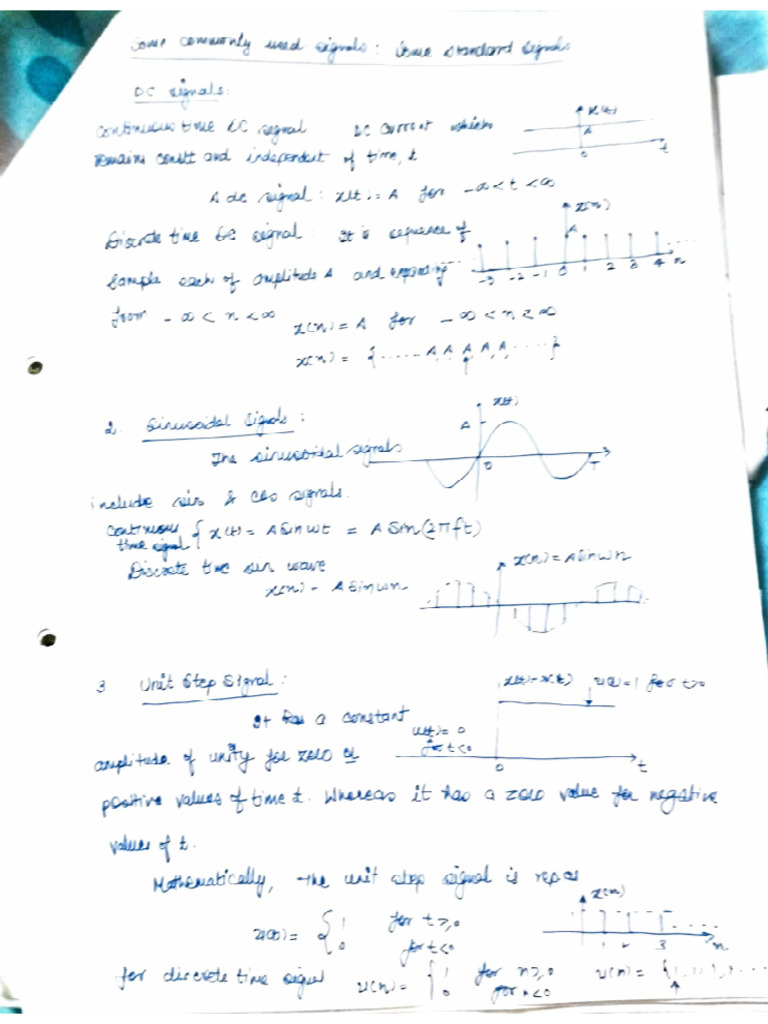 Some commonly used signals: Some standard signals
DC signals:
continuous time DC signal DC current which
x(t)
A
0
t
remains constt and independent of time, t
A dc signal: x(t) = A for -∞ < t < ∞
x(n)
Discrete time DC signal: It is sequence of
A
sample each of amplitude A and
-3 -2 -1 0 1 2 3 4 n
from -∞ < n < ∞
x(n) = A for -∞ < n < ∞
x(n) = {.....A, A, A, A, A, .....}
x(t)
2. Sinusoidal signals:
A
The sinusoidal signals
0
T
include sin & cos signals.
continuous time signal { x(t) = A sin ωt = A sin(2πft)
x(n) = A sin ωn
Discrete time sin wave
x(n) = A sin ωn
3 Unit Step Signal:
u(t) = 1 for t>0
It has a constant
u(t) = 0
for t<0
amplitude of unity for zero or
0
t
positive values of time t. Whereas it has a zero value for negative
values of t.
Mathematically, the unit step signal is repas
x(n)
u(t) = { 1 for t≥0
0 for t<0
1 2 3 n
for discrete time signal u(n) = { 1 for n≥0
0 for n<0
u(n) = {1, 1, 1, 1, ....